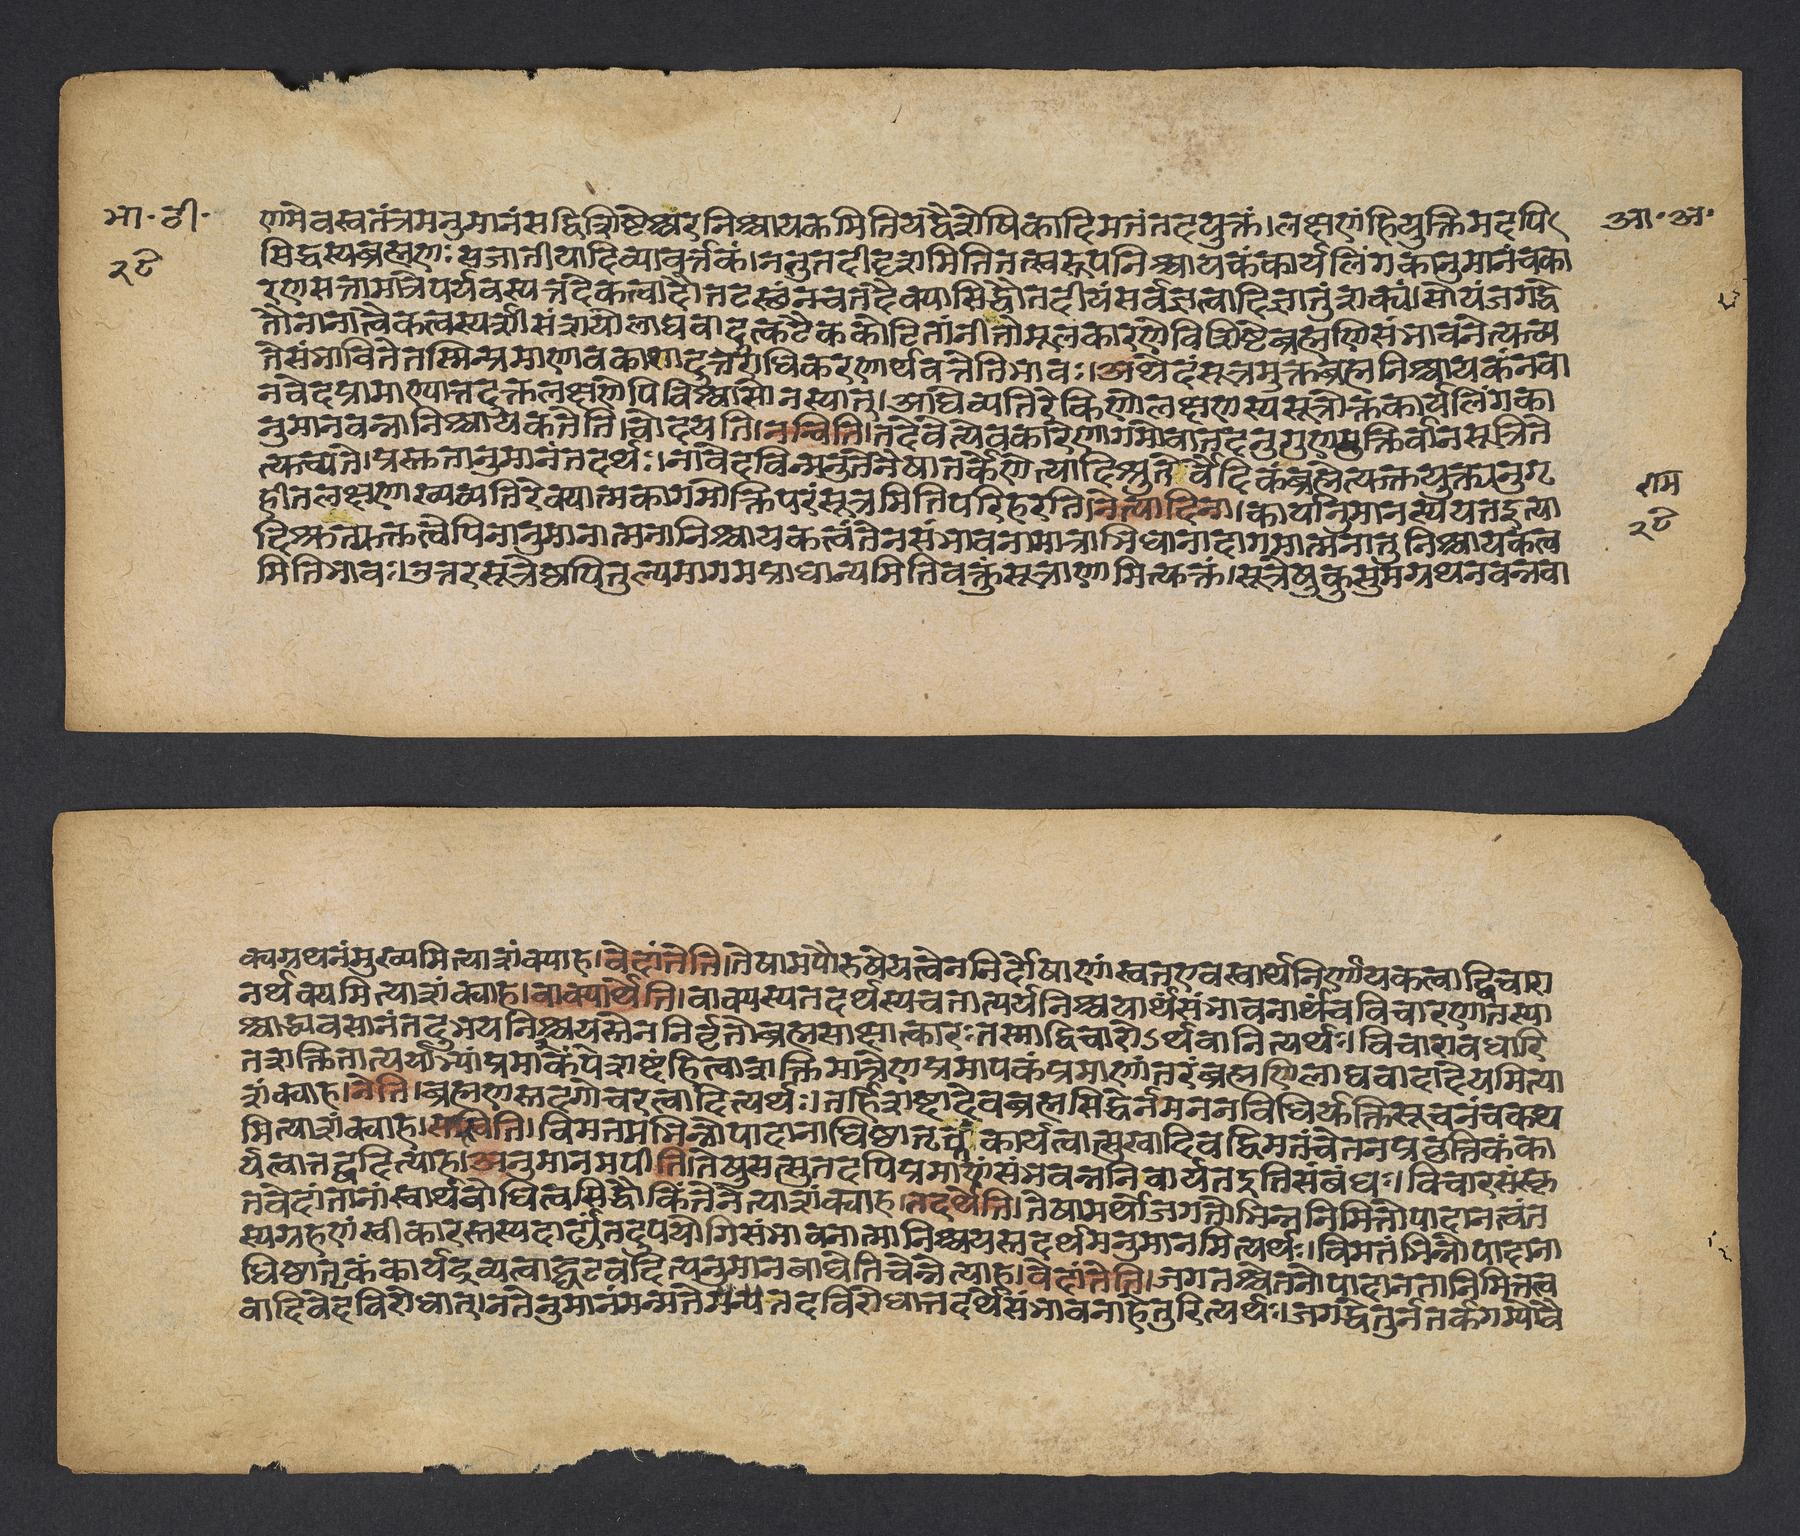 भा॰ टी॰
२८
आ॰ अ॰
णमेवस्वतंत्रमनुमानंसद्विशिष्टेश्वरनिश्चायकमितियद्वैशेषिकादिमतंतदयुक्तं।लक्षणंहियुक्तिमदपि
सिद्धस्यब्रह्मणःसजातीयादिव्यावर्त्तकं।नतुतदीदृशमितितत्स्वरूपनिश्चायकंकार्यलिंगकानुमानंचका
रणसत्तामात्रेपर्यवस्यन्नतदेकत्वादौतटस्थंनचतदैक्यासिद्धौतदीयंसर्वज्ञत्वादिज्ञातुंशक्यं।सोयंजगद्धे
तौनानात्वैकत्वस्पर्शीसंशयोलाघवादुत्कटैककोटितांनीतोमूलकारणेविशिष्टेब्रह्मणिसंभावनेत्युच्य
तेसंभावितेतस्मिन्प्रमाणावकाशादुत्तराधिकरणार्थवत्तेतिभावः।अथेदंसूत्रमुक्तब्रह्मनिश्चायकंनवा
नवेदप्रामाण्यात्तदुक्तलक्षणेपिविश्वासोनस्यात्।आद्येव्यतिरेकिणोलक्षणस्यसूत्रोक्तकार्यलिंगका
नुमानवन्नानिश्चायकतेति।चोदयति।नन्विति।तदेवेत्येवकारेणागमोवातदनुगुणयुक्तिर्वानसूत्रिते
त्युच्यते।प्रस्तुतानुमानंतदर्थः।नावेदविन्मनुतेनैषातर्केणेत्यादिश्रुतेर्वैदिकंब्रह्मेत्युक्तयुक्त्यनुगृ
हीतलक्षणाख्यव्यतिरेक्यात्मकागमोक्तिपरंसूत्रमितिपरिहरति।नेत्यादिना।कार्यानुमानस्ययतइत्या
दिश्रुत्युक्तत्वेपिनानुमानात्मनानिश्चायकत्वंतेनसंभावनामात्राभिधानादागमात्मनातुनिश्चायकत्व
मितिभावः।उत्तरसूत्रेष्वपितुल्यमागमप्राधान्यमितिवक्तुंसूत्राणामित्युक्तं।सूत्रेषुकुसुमग्रथनवन्नवा
राम
२८
क्यग्रथनंमुख्यमित्याशंक्याह।वेदांतेति।तेषामपौरुषेयत्वेननिर्दोषाणांस्वतएवस्वार्थनिर्णायकत्वाद्विचारा
नर्थक्यमित्याशंक्याह।वाक्यार्थेति।वाक्यस्यतदर्थस्यचतात्पर्यनिश्चयार्थसंभावनार्थंचविचारणातस्या
श्चाध्यवसानंतदुभयनिश्चयस्तेननिर्वृत्तोब्रह्मसाक्षात्कारःतस्माद्विचारोऽर्थवानित्यर्थः।विचारावधारि
तशक्तितात्पर्याभ्यांप्रमाकंपेशष्टंहित्वाशक्तिमात्रेणप्रमापकंप्रमाणांतरंब्रह्मणिलाघवादादेयमित्या
शंक्याह।नेति।ब्रह्मणस्तदगोचरत्वादित्यर्थः।तर्हिशब्दादेवब्रह्मसिद्धेर्नमननविधिर्युक्तिसूचनंचकथ
मित्याशंक्याह।सत्स्विति।विमतमभिन्नोपादानाधिष्ठातृकंकार्यत्वात्सुखादिवद्विमतंचेतनप्रकृतिकंका
र्यत्वात्तद्वदित्याह।अनुमानमपीति।तेषुसत्सुतदपिप्रमाणंसंभवन्ननिवार्यतइतिसंबंधः।विचारसंस्कृ
तवेदांतानांस्वार्थबोधित्वसिद्धौकिंतेनेत्याशंक्याह।तदर्थेति।तेषामर्थोजगतोभिन्ननिमित्तोपादानत्वंत
स्यग्रहणंस्वीकारस्तस्यदार्ढ्यंतदुपयोगिसंभावनात्मानिश्चयस्तदर्थमनुमानमित्यर्थः।विमतंभिन्नोपादाना
धिष्ठातृकंकार्यद्रव्यत्वाद्घटवदित्यनुमानबाधेतिचेन्नेत्याह।वेदांतेति।जगतश्चेतनोपादानतानिमित्तत्व
वादिवेदविरोधात्।नतेनुमानंमन्मतेमन्यतदविरोधात्तदर्थसंभावनाहेतुरित्यर्थः।जगद्धेतुर्नतर्कगम्योवै